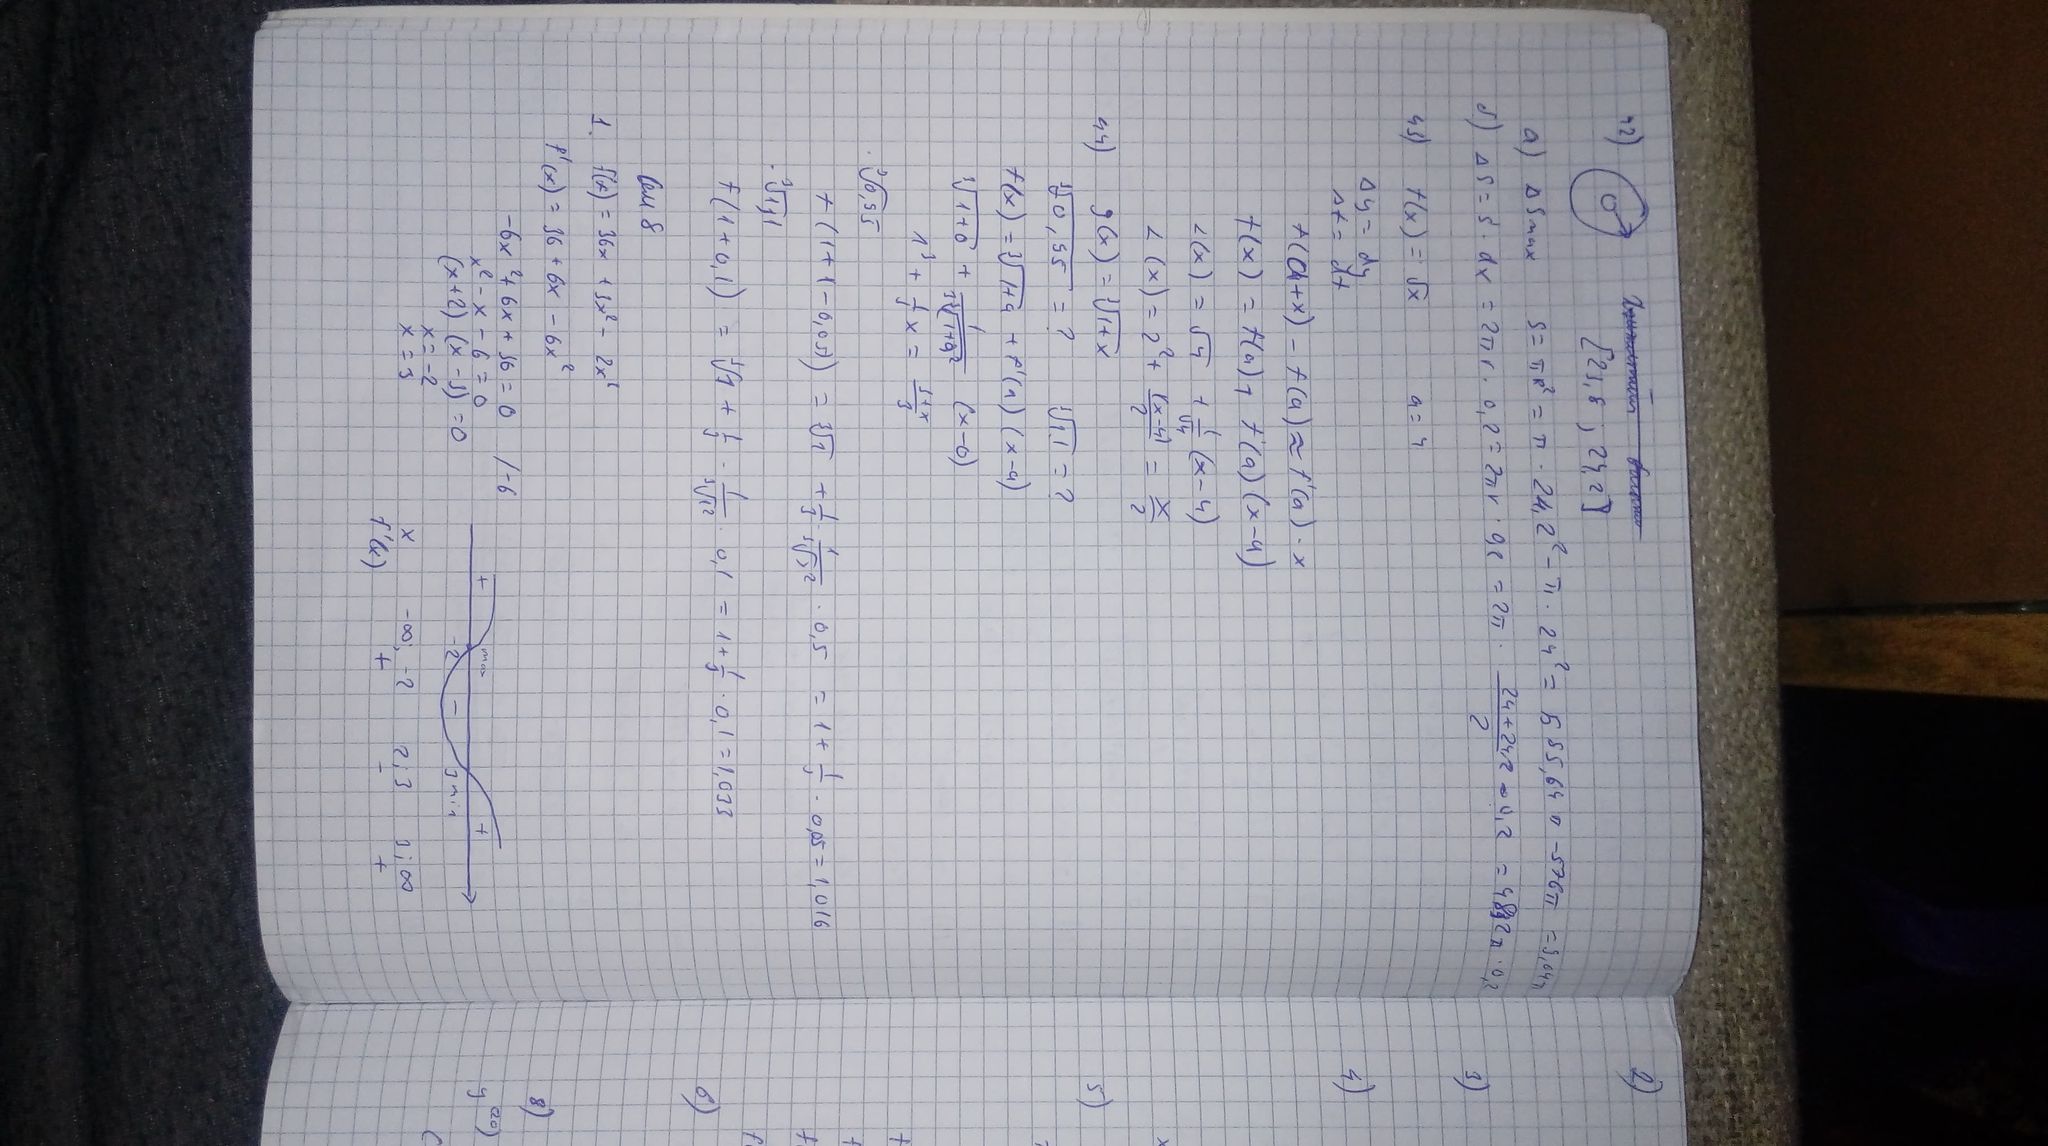 42) [23,8 ; 24,2]
a) ΔSmax S = πR² = π · 24,2² - π · 24² = 585,64π - 576π = 9,64π
б) ΔS = S' · dx = 2πr · 0,2 = 2πr · 0,2 = 2π · (24+24,2)/2 · 0,2 = 48,2π · 0,2
43) f(x) = √x a = 4
Δy = dy
Δt = dt
f(a+x) - f(a) ≈ f'(a) · x
f(x) = f(a) + f'(a)(x-4)
L(x) = √4 + 1/√4 (x-4)
L(x) = 2 + (x-4)/2 = x/2
44) g(x) = ³√1+x
³√0,95 = ? ³√1,1 = ?
f(x) = ³√1+a + f'(a)(x-a)
³√1+0 + 1/³√(1+a)² (x-0)
1³ + 1/3 x = 3+x/3
· ³√0,95
f(1+1-0,05) = ³√1 + 1/3 · 1/³√1² · 0,5 = 1 + 1/3 · 0,05 = 1,016
· ³√1,1
f(1+0,1) = ³√1 + 1/3 · 1/³√1² · 0,1 = 1 + 1/3 · 0,1 = 1,033
1. f(x) = 36x + 3x² - 2x³
f'(x) = 36 + 6x - 6x²
-6x² + 6x + 36 = 0 /-6
x² - x - 6 = 0
(x+2)(x-3) = 0
x = -2
x = 3
+ max -2 - 3 min +
x -∞; -2 2; 3 3; ∞
f'(x) + - +
2)
3)
4)
5)
6)
8)